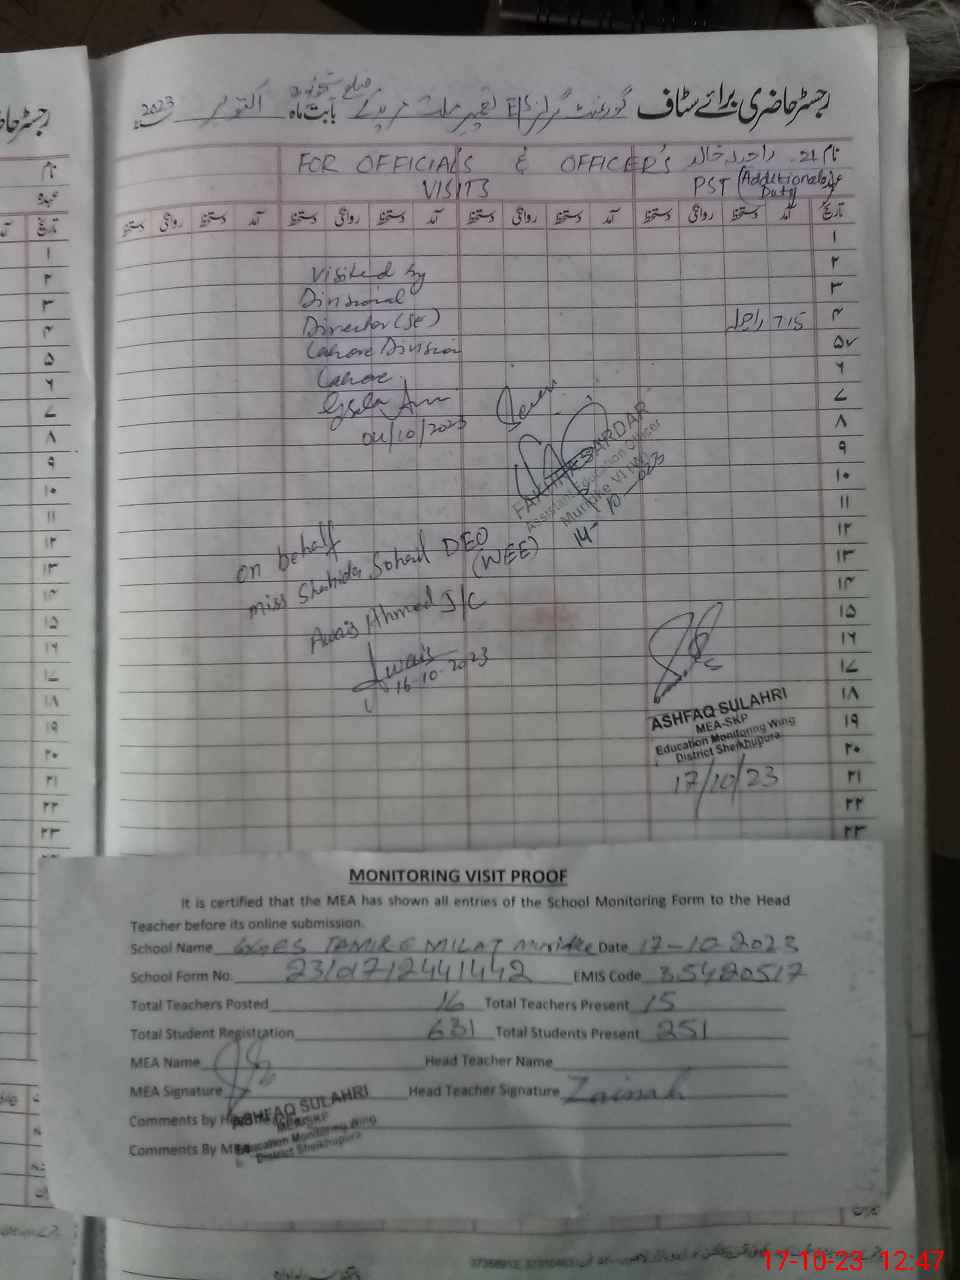 رجسٹر حاضری برائے سٹاف گورنمنٹ گرلز E/S تعمیر ملت مریدکے بابت ماہ اکتوبر 2023
FOR OFFICIALS & OFFICER'S
VISITS
نام 21.
PST (Additional
Duty)
تاریخ آمد دستخط روانگی دستخط آمد دستخط روانگی دستخط آمد دستخط روانگی دستخط آمد دستخط روانگی دستخط
۱
۲
۳
۴
7.15
۵
۶
۷
۸
۹
۱۰
۱۱
۱۲
۱۳
۱۴
۱۵
۱۶
۱۷
۱۸
۱۹
۲۰
۲۱
۲۲
۲۳
Visited by
Divisional
Director (SE)
Lahore Division
Lahore.
04/10/2023
SARDAR
Assistant Education Officer
Muridke VI
14-10-023
on behalf
miss Shahida Sohail DEO
(WEE)
Awais Ahmed J/C
Awais
16-10-2023
ASHFAQ SULAHRI
MEA-SKP
Education Monitoring Wing
District Sheikhupura
17/10/23
MONITORING VISIT PROOF
It is certified that the MEA has shown all entries of the School Monitoring Form to the Head
Teacher before its online submission.
School Name GGES TAMIR E MILAT Muridke Date 17-10-2023
School Form No. 23101712441442 EMIS Code 35420517
Total Teachers Posted 16 Total Teachers Present 15
Total Student Registration 631 Total Students Present 251
MEA Name Head Teacher Name
MEA Signature Head Teacher Signature Zainab
Comments by Head
ASHFAQ SULAHRI
MEA-SKP
Comments By MEA
Education Monitoring Wing
District Sheikhupura
17-10-23 12:47